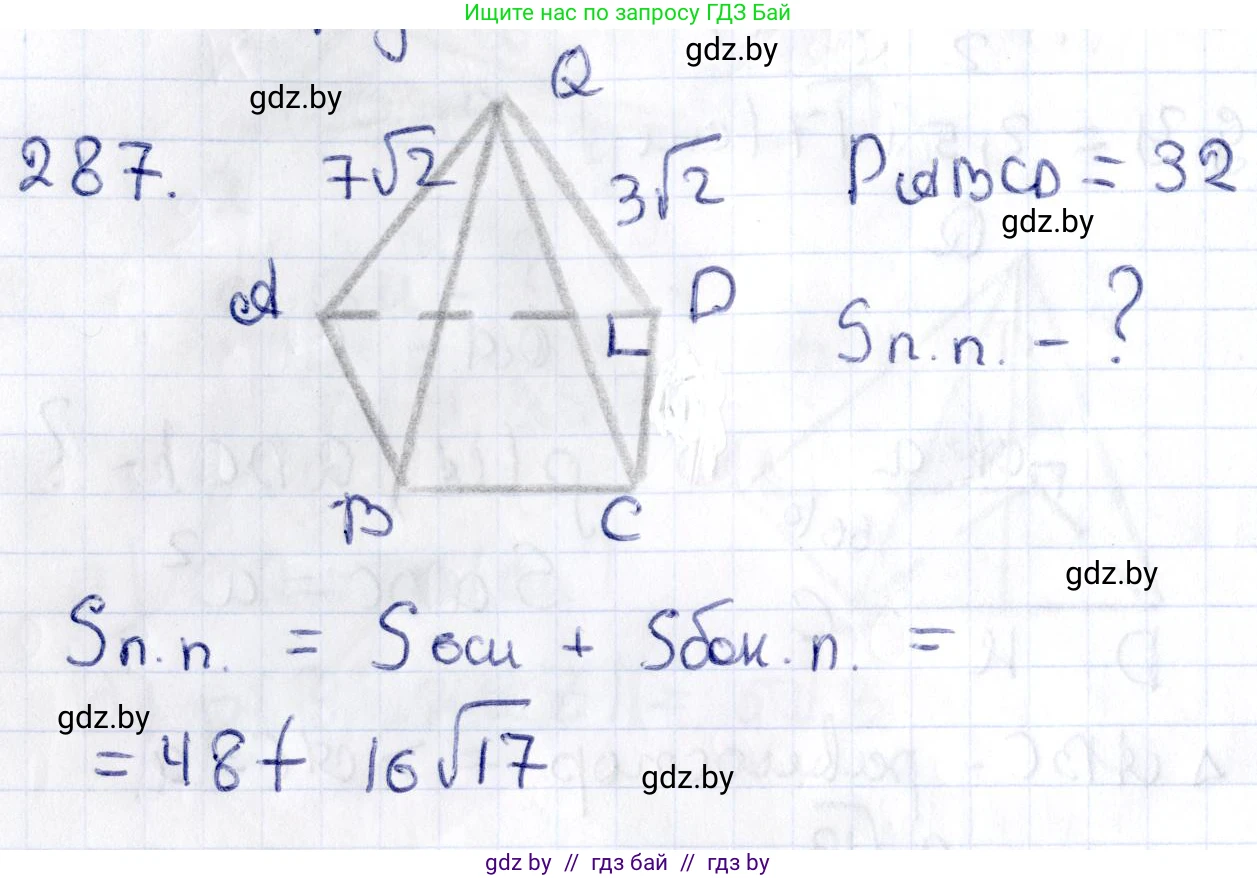 Ищите нас по запросу ГДЗ Бай
gdz.by
Q
gdz.by
287. 7√2 3√2 PABCD = 32
gdz.by
A D
Sп.п. - ?
B C
gdz.by
Sп.п. = Sосн + Sбок.п. =
gdz.by
= 48 + 16√17
gdz.by
gdz.by // гдз бай // гдз by